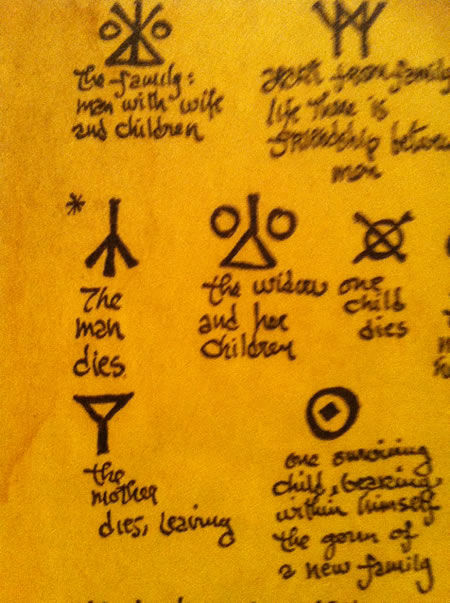 the family:
man with wife
and children
from family
life there is
friendship
men
*
The
man
dies.
the widow
and her
children
one
child
dies
the
mother
dies, leaving
one surviving
child, bearing
within himself
the germ of
a new family